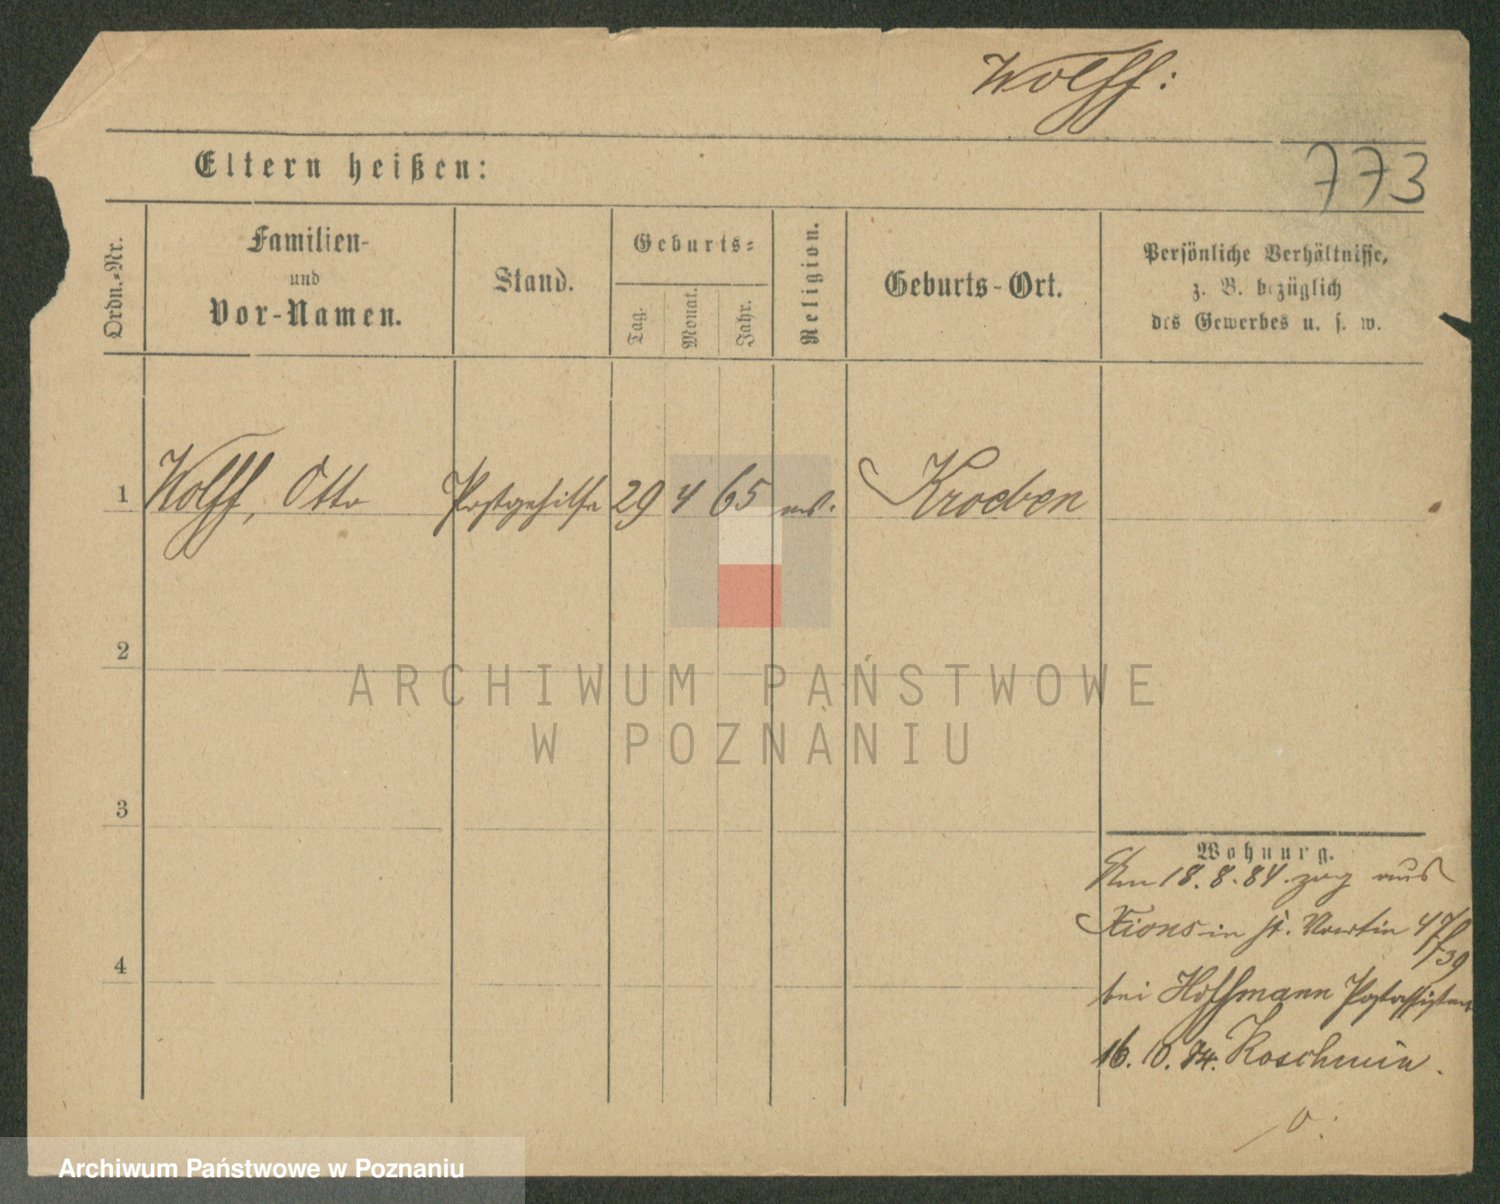 Wolff:
773
Eltern heißen:
Ordn.-Nr.
Familien-
und
Vor-Namen.
Stand.
Geburts-
Tag.
Monat.
Jahr.
Religion.
Geburts-Ort.
Persönliche Verhältnisse,
z. B. bezüglich
des Gewerbes u. s. w.
1 Wolff, Otto Postgehilfe 29 4 65 Kroeben
2
ARCHIWUM PAŃSTWOWE
W POZNANIU
3
Wohnung.
Am 18.8.84. zog aus
Xions in St. Martin 47/39
4
bei Hoffmann Postassistent
16.10.84. Koschmin.
Archiwum Państwowe w Poznaniu